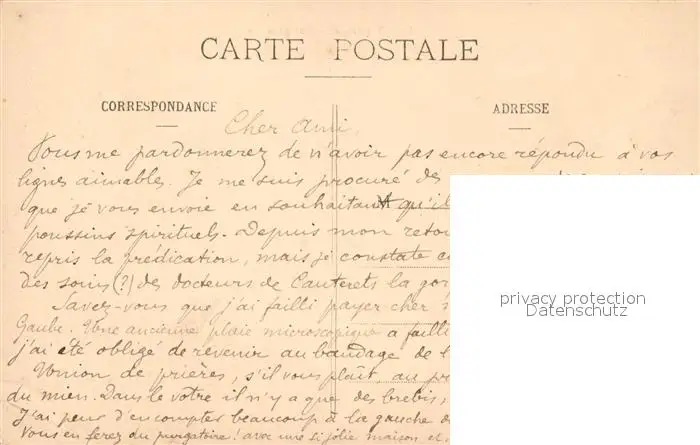 CARTE POSTALE
CORRESPONDANCE
ADRESSE
Cher Ami,
Vous me pardonnerez de n'avoir pas encore répondu à vos
lignes aimables. Je me suis procuré des
que je vous envoie en souhaitant qu'il
poussins spirituels. Depuis mon retou
repris la prédication, mais je constate
des soins (?) des docteurs de Cauterets la gor
Savez-vous que j'ai failli payer cher
Gaube. Une ancienne plaie microscopique a failli
j'ai été obligé de revenir au bandage de l
Union de prières, s'il vous plaît, au pr
du mien. Dans le vôtre il n'y a que des brebis,
J'ai peur d'en compter beaucoup à la gauche d
Vous en ferez du purgatoire! avec une si jolie maison et
privacy protection
Datenschutz